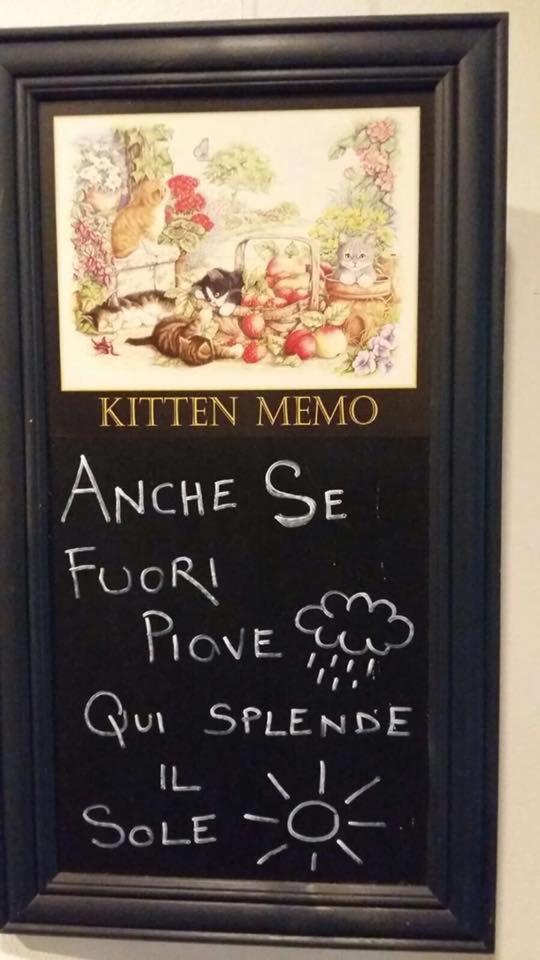 KITTEN MEMO
ANCHE SE
FUORI
PIOVE
QUI SPLENDE
IL
SOLE